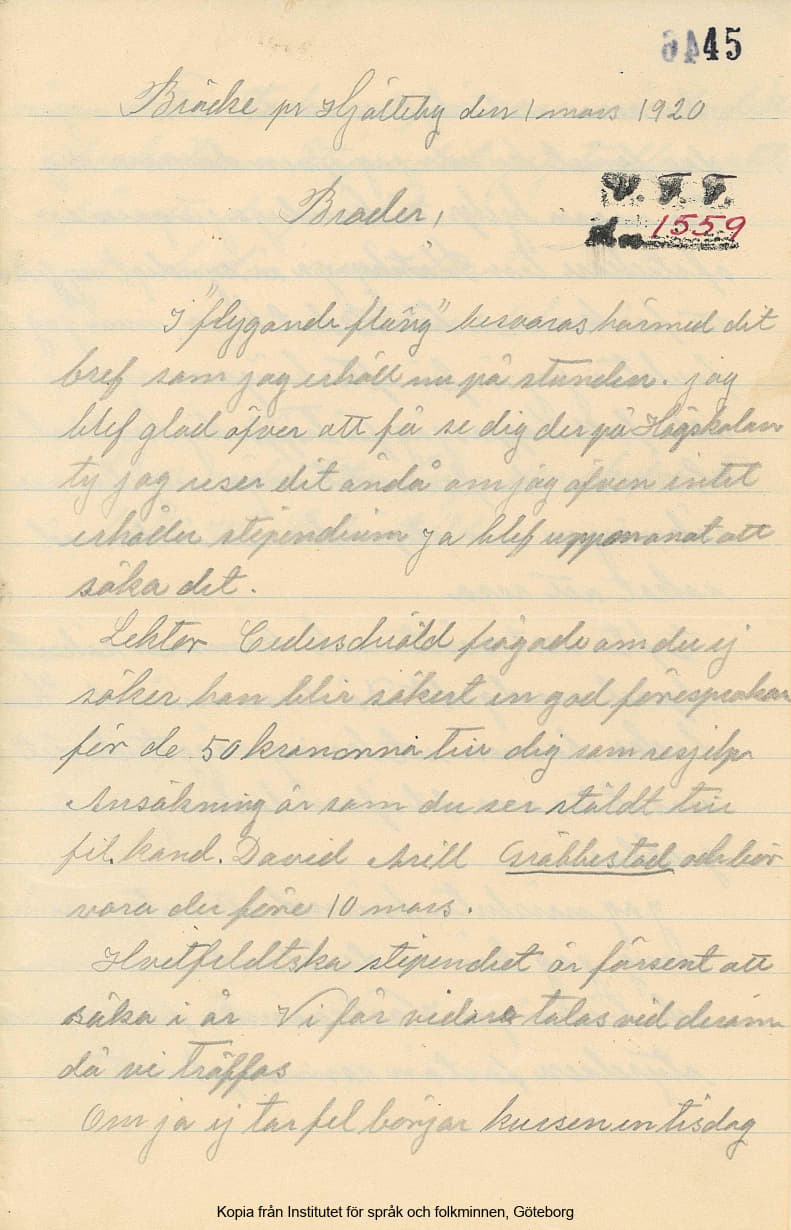 6445
Bräcke pr Hjälteby den 1 mars 1920
Broder,
1559
I "flygande fläng" besvaras härmed dit
bref som jag erhåll nu på stunden. jag
blef glad öfver att få se dig der på Högskolan
ty jag reser dit ändå om jag äfven intet
erhåller stipendium ja blef uppmanat att
söka det.
Lektor Cederschiöld frågade om du ej
söker han blir säkert en god förespråkar
för de 50 kronorna till dig som resjelp
Ansökning är som du ser stäldt till
fil. kand. David Arill Gräbbestad och bör
vara der före 10 mars.
Hvitfeldtska stipendiet är försent att
söka i år Vi får vidare talas ved derom
då vi träffas
Om ja ej tar fel börjar kursen en tisdag
Kopia från Institutet för språk och folkminnen, Göteborg